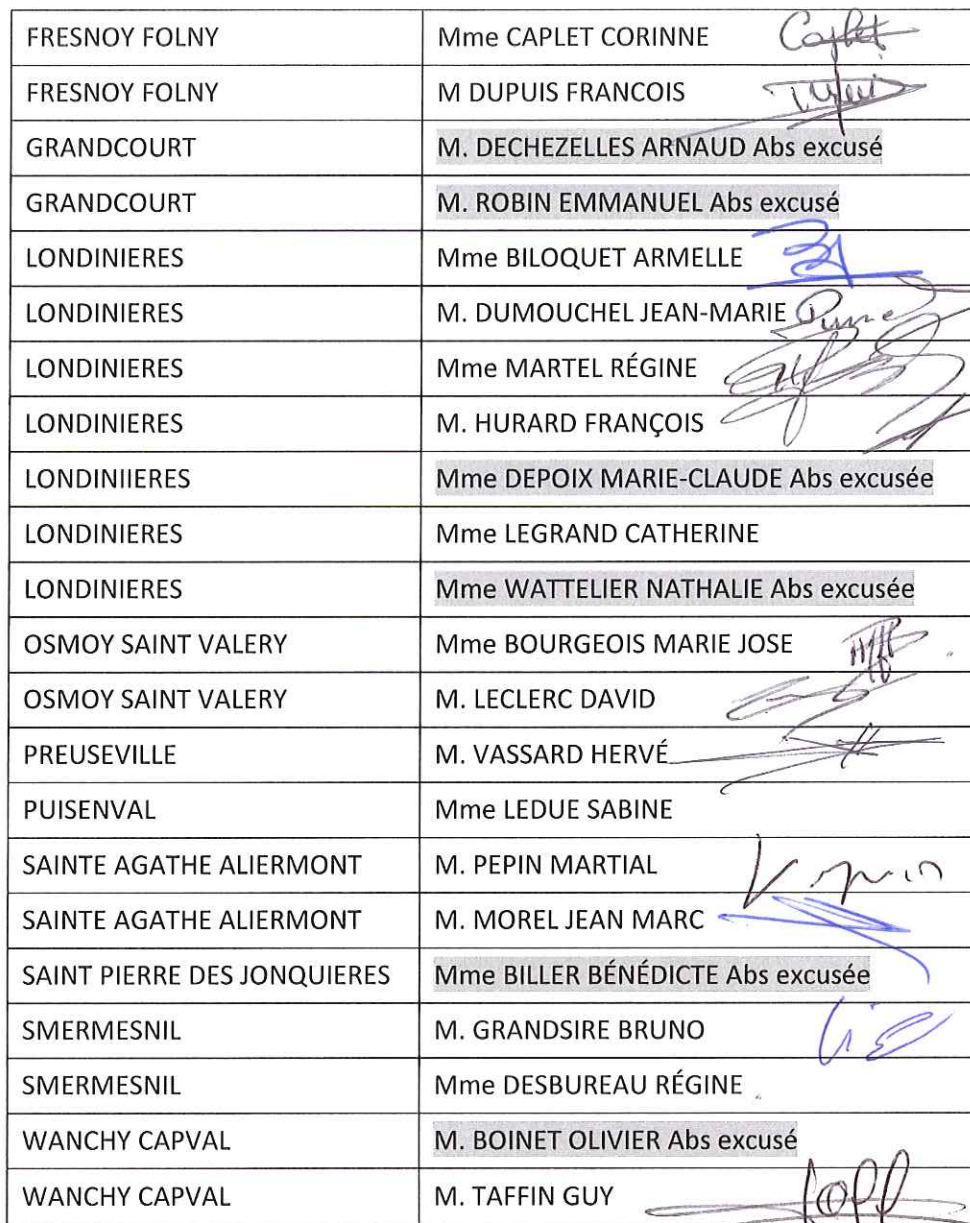 FRESNOY FOLNY Mme CAPLET CORINNE Caplet
FRESNOY FOLNY M DUPUIS FRANCOIS
GRANDCOURT M. DECHEZELLES ARNAUD Abs excusé
GRANDCOURT M. ROBIN EMMANUEL Abs excusé
LONDINIERES Mme BILOQUET ARMELLE
LONDINIERES M. DUMOUCHEL JEAN-MARIE
LONDINIERES Mme MARTEL RÉGINE
LONDINIERES M. HURARD FRANÇOIS
LONDINIIERES Mme DEPOIX MARIE-CLAUDE Abs excusée
LONDINIERES Mme LEGRAND CATHERINE
LONDINIERES Mme WATTELIER NATHALIE Abs excusée
OSMOY SAINT VALERY Mme BOURGEOIS MARIE JOSE
OSMOY SAINT VALERY M. LECLERC DAVID
PREUSEVILLE M. VASSARD HERVÉ
PUISENVAL Mme LEDUE SABINE
SAINTE AGATHE ALIERMONT M. PEPIN MARTIAL
SAINTE AGATHE ALIERMONT M. MOREL JEAN MARC
SAINT PIERRE DES JONQUIERES Mme BILLER BÉNÉDICTE Abs excusée
SMERMESNIL M. GRANDSIRE BRUNO
SMERMESNIL Mme DESBUREAU RÉGINE
WANCHY CAPVAL M. BOINET OLIVIER Abs excusé
WANCHY CAPVAL M. TAFFIN GUY